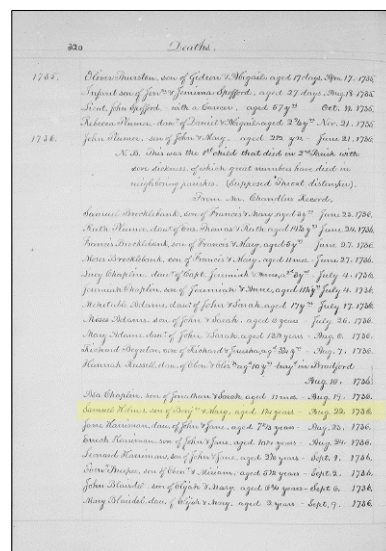 320 Deaths.
1735. Oliver Thurston, son of Gideon & Abigail, aged 17 days, Apr. 17. 1735.
Infant son of Jonn & Jemima Spofford, aged 27 days, Aug. 18. 1735.
Lieut. John Spofford, with a Cancer, aged 57 yrs Oct. 1735.
Rebecca daur of Daniel & Abigail, aged Nov. 21. 1735.
1736. John son of John & Mary, aged yrs June 21. 1736.
N.B. This was the 1st child that died in 2nd Parish with
sore sickness, of which great numbers have died in
neighboring parishes. (supposed Throat distemper).
From Mr. Chandlers Record.
Samuel Brocklebank, son of Francis & Mary, aged June 23. 1736.
Ruth daur of Thomas & Ruth, aged June 24. 1736.
Francis Brocklebank, son of Francis & Mary, aged June 27. 1736.
Moses Brocklebank, son of Francis & Mary, aged 11 mos. June 27. 1736.
Lucy Chaplin, daur of Capt. Jeremiah & July 4. 1736.
Jeremiah Chaplin, son of Jeremiah & aged July 4. 1736.
Mehetable Adams, daur of John & Sarah, aged 17 yrs July 17. 1736.
Moses Adams, son of John & Sarah, aged years - July 26. 1736.
Mary Adams, daur of John & Sarah, aged years - Aug. 6. 1736.
Richard Boynton, son of Richard & Aug. 7. 1736.
Hannah Russell, daur of in Bradford
Aug. 1736.
Bea Chaplin, son of Jonathan & Sarah, aged mos - Aug. 19. 1736.
Samuel son of Benjn & Mary, aged years - Aug. 22. 1736.
Jane Harriman, daur of John & Jane, aged years - Aug. 23. 1736.
Enoch Harriman, son of John & Jane, aged years - Aug. 24. 1736.
Leonard Harriman, son of John & Jane, aged years - Sept. 1736.
Burpee, son of Ebenr & Miriam, aged years - Sept. 2. 1736.
John Blaisdel, son of Elijah & Mary, aged years - Sept. 6. 1736.
Mary Blaisdel, daur of Elijah & Mary, aged 2 years - Sept. 9. 1736.